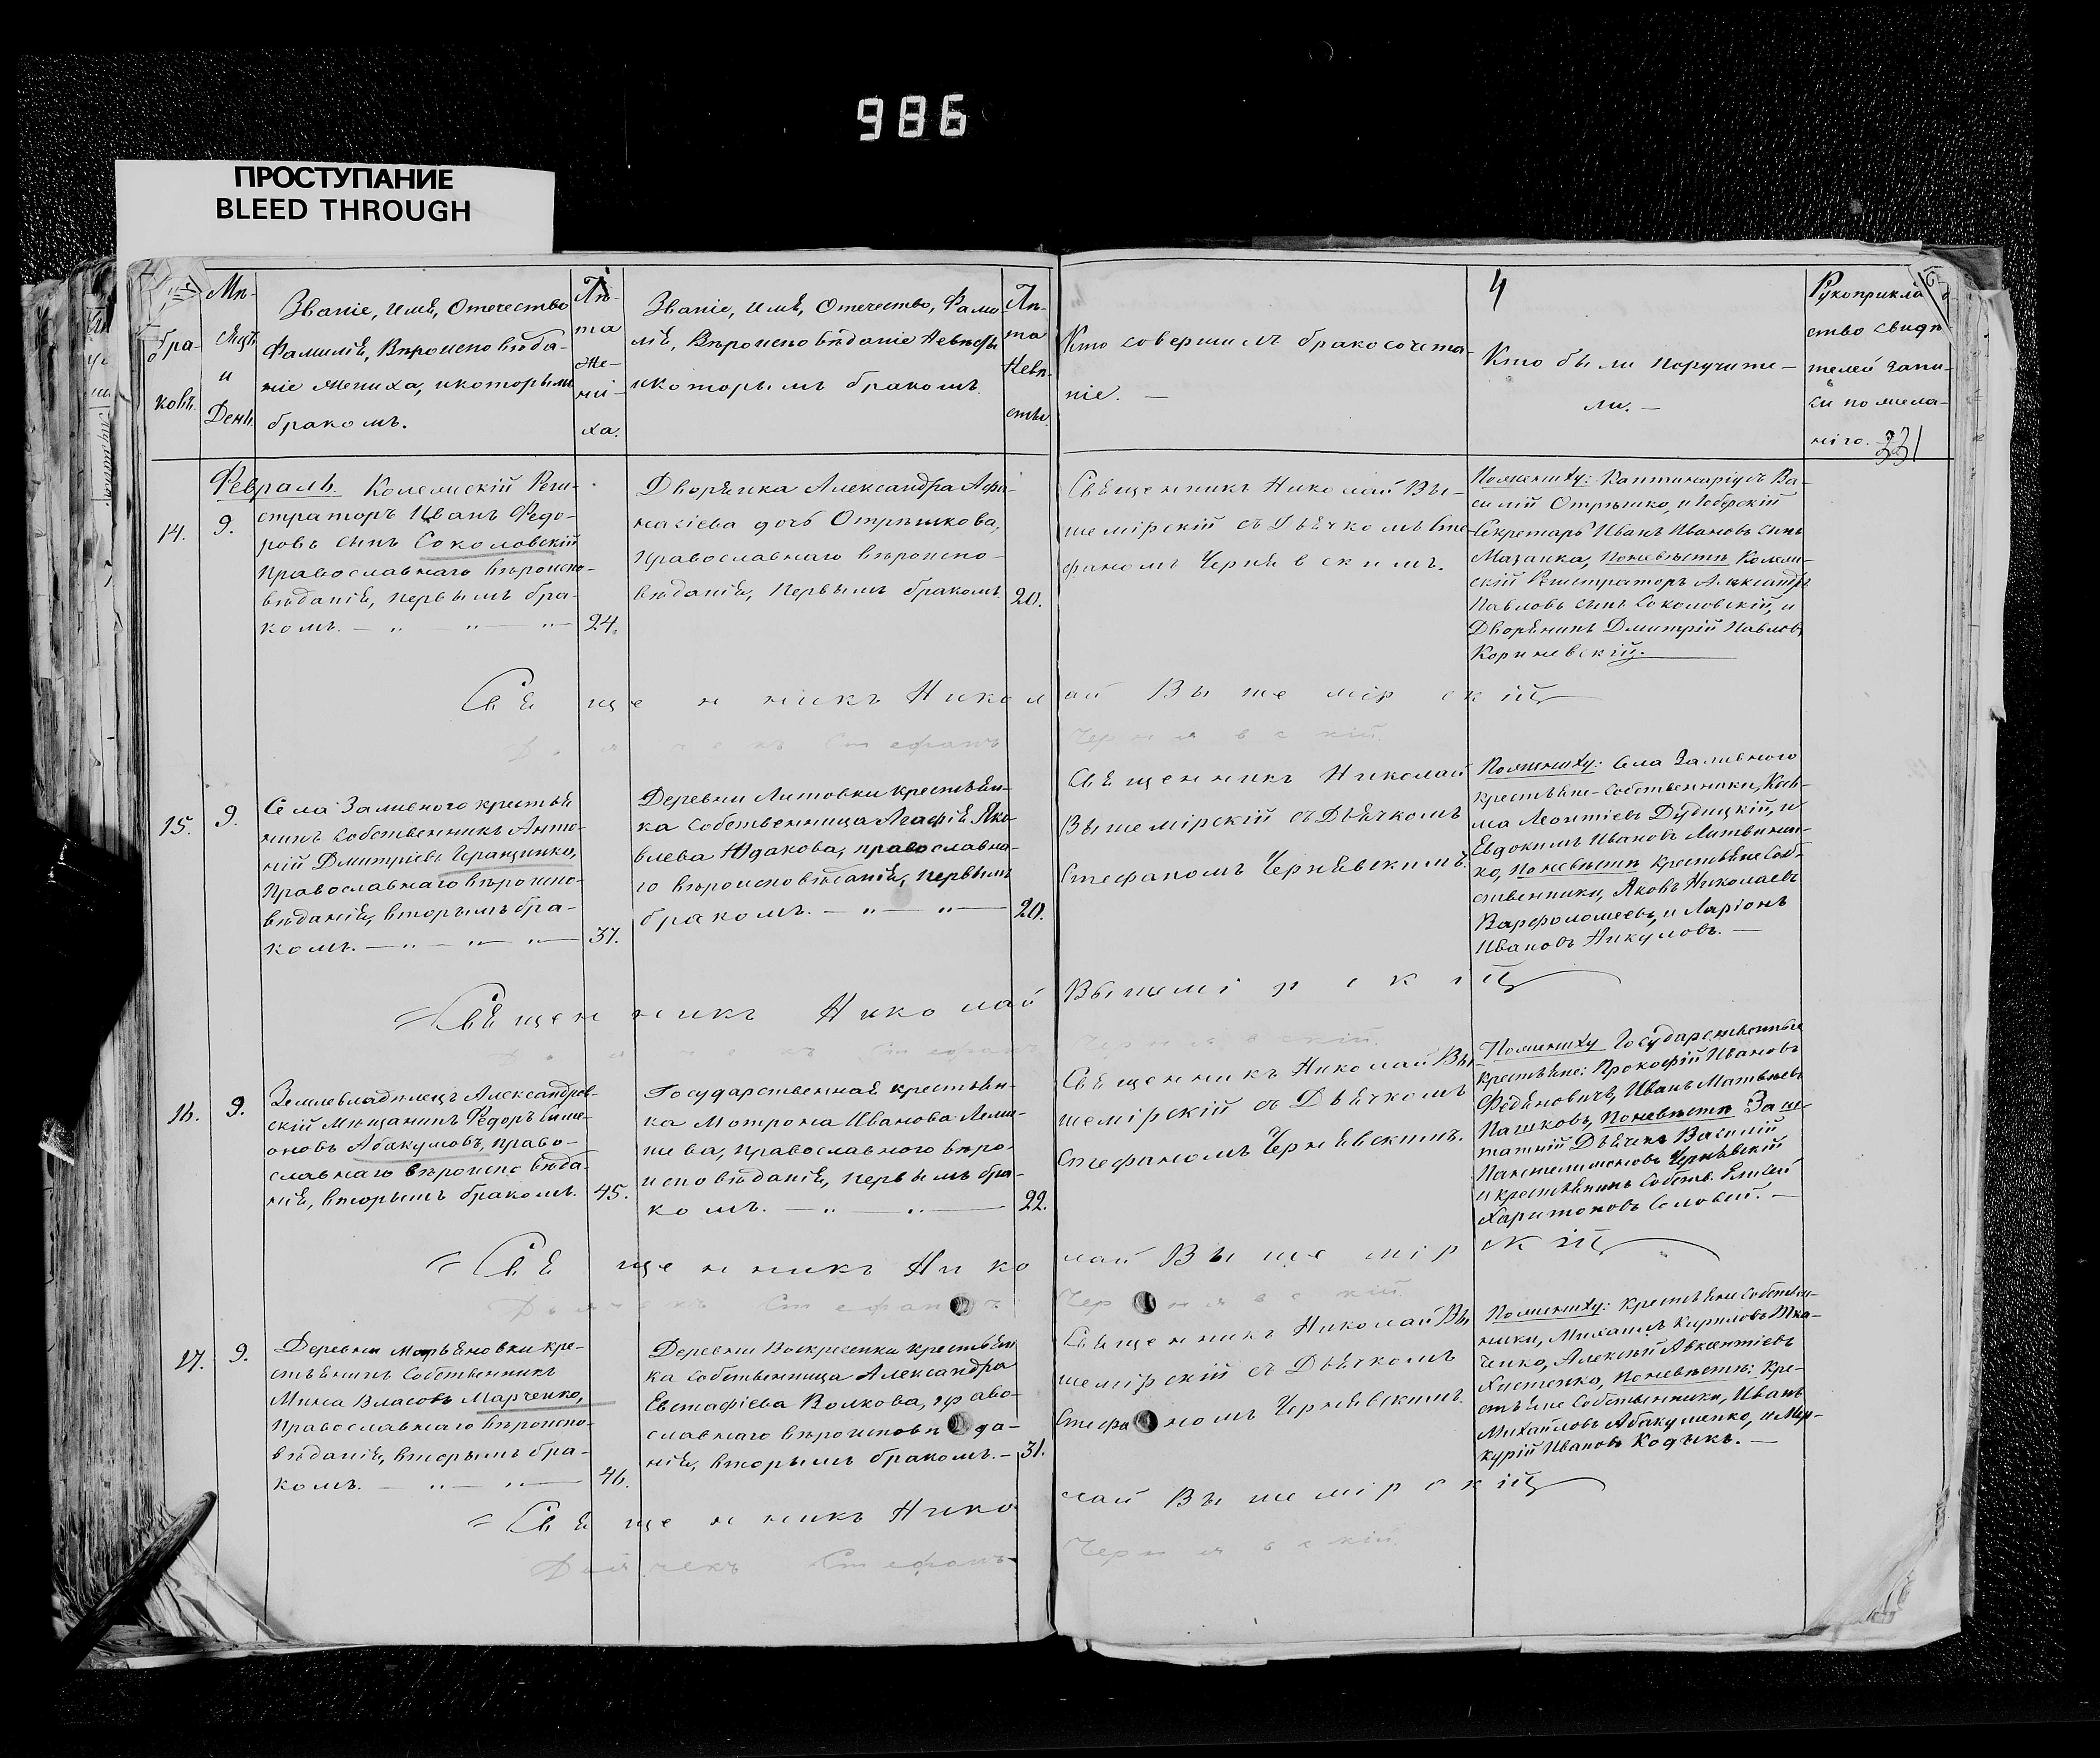 986
ПРОСТУПАНИЕ
BLEED THROUGH
бра-
ковъ.
Мѣ-
сяцъ
и
День.
Званіе, имя, Отечество
Фамилія, Вѣроисповѣда-
ніе жениха, и которымъ
бракомъ.
Лѣ-
та
же-
ни-
ха.
Званіе, имя, Отечество, Фами
лія, Вѣроисповѣданіе Невѣсты
и которымъ бракомъ.
Лѣ-
та
Невѣ-
сты.
Кто совершилъ бракосочета-
ніе. —
4
Кто были поручите-
ли. —
Рукоприклад
ство свидѣ-
телей запи-
си по жела-
нію.
331
14.
Февраль
9.
Колежскій Реги-
страторъ Иванъ Федо-
ровъ сынъ Соколовскій
Православнаго вѣроиспо-
вѣданія, первымъ бра-
комъ. — „ — „ — „ —
24.
Дворянка Александра Афа-
насіева дочь Отрѣшкова,
Православнаго вѣроиспо-
вѣданія, первымъ бракомъ.
20.
Священникъ Николай Вы-
шемірскій съ Дьячкомъ Сте-
фаномъ Чернявскимъ.
По жениху: Каптинармусъ Ва-
силій Отрѣшко, и Губерскій
Секретарь Иванъ Ивановъ сынъ
Мазанка, По невѣстѣ Колеж-
скій Регистраторъ Александръ
Павловъ сынъ Соколовскій, и
Дворянинъ Дмитрій Павловъ
Кориневскій.
Священникъ Николай Вышемірскій
Дьячекъ Стефанъ Чернявскій
15.
9.
Села Заливного крестья
нинъ Собственникъ Анто-
ній Дмитріевъ Геращенко,
Православнаго вѣроиспо-
вѣданія, вторымъ бра-
комъ. — „ — „ — „ —
37.
Деревни Литовки крестьян-
ка Собственница Агафія Яко-
влева Юдакова, православна-
го вѣроисповѣданія, первымъ
бракомъ. — „ — „ —
20.
Священникъ Николай
Вышемірскій съ Дьячкомъ
Стефаномъ Чернявскимъ.
По жениху: Села Заливного
крестьяне-собственники, Кось-
ма Леонтіевъ Дудицкій, и
Евдокимъ Ивановъ Литвинен-
ко, По невѣстѣ крестьяне Соб-
ственники, Яковъ Николаевъ
Варфоломеевъ, и Ларіонъ
Ивановъ Никуловъ. —
Священникъ Николай Вышемірскій
Дьячекъ Стефанъ Чернявскій
16.
9.
Землевладѣлецъ Александров-
скій Мѣщанинъ Федоръ Симе-
оновъ Абакумовъ, право-
славнаго вѣроисповѣда-
нія, вторымъ бракомъ.
45.
Государственная крестьян-
ка Мотрона Иванова Леми-
шева, православного вѣро-
исповѣданія, первымъ бра-
комъ. — „ — „ —
22.
Священникъ Николай Вы
шемірскій съ Дьячкомъ
Стефаномъ Чернявскимъ.
По жениху Государственные
крестьяне: Прокофій Ивановъ
Федяновичъ, Иванъ Матвѣевъ
Пашковъ, По невѣстѣ Заш-
татній Дьячекъ Василій
Пантелимоновъ Чернявскій
и крестьянинъ Собств. Емелей
Харитоновъ Соловей. —
Священникъ Николай Вышемірскій
Дьячекъ Стефанъ Чернявскій
17.
9.
Деревни Марьяновки кре-
стьянинъ Собственникъ
Мина Власовъ Марченко,
Православнаго вѣроиспо-
вѣданія, вторымъ бра-
комъ. — „ — „ —
46.
Деревни Воскресенки крестьян
ка Собственница Александра
Евстафіева Волкова, право-
славнаго вѣроисповѣда-
нія, вторымъ бракомъ. —
31.
Священникъ Николай Вы
шемірскій съ Дьячкомъ
Стефаномъ Чернявскимъ.
По жениху: крестьяни Собствен-
ники, Михаилъ Кириловъ Тка-
ченко, Алексѣй Авксентіевъ
Хистенко, По невѣстѣ: Кре-
стьяне Собственники, Иванъ
Михайловъ Абакуменко, и Мер-
курій Ивановъ Кодыкъ. —
Священникъ Николай Вышемірскій
Дьячекъ Стефанъ Чернявскій